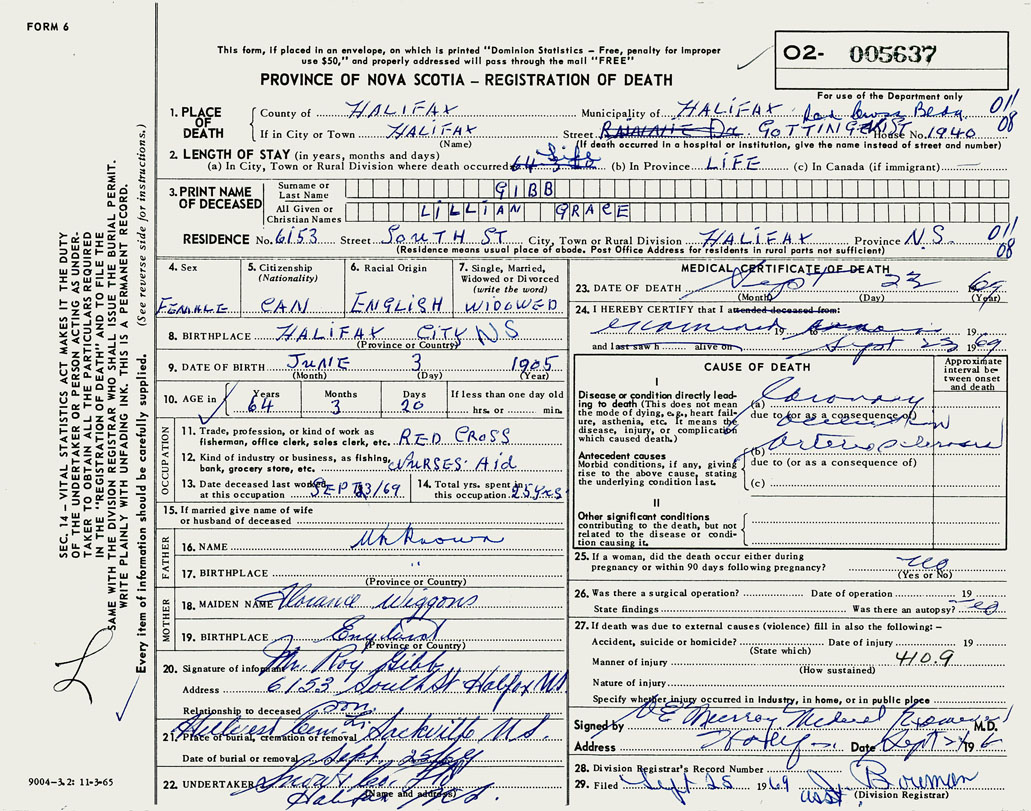 FORM 6
This form, if placed in an envelope, on which is printed "Dominion Statistics – Free, penalty for improper
use $50," and properly addressed will pass through the mail "FREE"
PROVINCE OF NOVA SCOTIA – REGISTRATION OF DEATH
O2- 005637
For use of the Department only
SEC. 14 – VITAL STATISTICS ACT MAKES IT THE DUTY
OF THE UNDERTAKER OR PERSON ACTING AS UNDER-
TAKER TO OBTAIN ALL THE PARTICULARS REQUIRED
IN THE "REGISTRATION OF DEATH" AND TO FILE THE
SAME WITH THE DIVISION REGISTRAR WHO SHALL ISSUE THE BURIAL PERMIT.
WRITE PLAINLY WITH UNFADING INK. THIS IS A PERMANENT RECORD.
Every item of information should be carefully supplied. (See reverse side for instructions.)
1. PLACE OF DEATH
County of HALIFAX Municipality of HALIFAX 011
If in City or Town HALIFAX Street GOTTINGEN ST House No. 1940 08
(Name) (If death occurred in a hospital or institution, give the name instead of street and number)
2. LENGTH OF STAY (in years, months and days)
(a) In City, Town or Rural Division where death occurred Life (b) In Province LIFE (c) In Canada (if immigrant)
3. PRINT NAME OF DECEASED
Surname or Last Name GIBB
All Given or Christian Names LILLIAN GRACE
RESIDENCE No. 6153 Street SOUTH ST City, Town or Rural Division HALIFAX Province N.S. 011
(Residence means usual place of abode. Post Office Address for residents in rural parts not sufficient) 08
4. Sex FEMALE
5. Citizenship (Nationality) CAN
6. Racial Origin ENGLISH
7. Single, Married, Widowed or Divorced (write the word) WIDOWED
8. BIRTHPLACE HALIFAX CITY NS
(Province or Country)
9. DATE OF BIRTH JUNE 3 1905
(Month) (Day) (Year)
10. AGE in Years 64 Months 3 Days 20 If less than one day old hrs. or min.
OCCUPATION
11. Trade, profession, or kind of work as
fisherman, office clerk, sales clerk, etc. RED CROSS
12. Kind of industry or business, as fishing,
bank, grocery store, etc. NURSES AID
13. Date deceased last worked
at this occupation SEPT 23/69
14. Total yrs. spent in
this occupation 25 Yrs
15. If married give name of wife
or husband of deceased
FATHER
16. NAME Unknown
17. BIRTHPLACE "
(Province or Country)
MOTHER
18. MAIDEN NAME Florance Wiggons
19. BIRTHPLACE England
(Province or Country)
20. Signature of informant Mr. Roy Gibb
Address 6153 South St Halifax NS
Relationship to deceased son
21. Place of burial, cremation or removal Hillcrest Cem. Sackville N.S.
Date of burial or removal Sept. 25/69
22. UNDERTAKER Snow & Co
(Name and address) Halifax N.S.
MEDICAL CERTIFICATE OF DEATH
23. DATE OF DEATH Sept 23 69
(Month) (Day) (Year)
24. I HEREBY CERTIFY that I attended deceased from:
examined 19 19
and last saw h alive on Sept 23 1969
CAUSE OF DEATH
Approximate interval between onset and death
I
Disease or condition directly lead-
ing to death (This does not mean
the mode of dying, e.g., heart fail-
ure, asthenia, etc. It means the
disease, injury, or complication
which caused death.)
(a) Coronary
due to (or as a consequence of)
occlusion
Antecedent causes
Morbid conditions, if any, giving
rise to the above cause, stating
the underlying condition last.
(b) Arteriosclerosis
due to (or as a consequence of)
(c)
II
Other significant conditions
contributing to the death, but not
related to the disease or condi-
tion causing it.
25. If a woman, did the death occur either during
pregnancy or within 90 days following pregnancy? no
(Yes or No)
26. Was there a surgical operation? Date of operation 19
State findings Was there an autopsy?
27. If death was due to external causes (violence) fill in also the following: –
Accident, suicide or homicide? Date of injury 19
(State which)
Manner of injury 410.9
(How sustained)
Nature of injury
Specify whether injury occurred in Industry, in home, or in public place
Signed by Murray Medical Examiner M.D.
Address Date Sept 24 196
28. Division Registrar's Record Number
29. Filed Sept 25 1969 asst Bowman
(Division Registrar)
9004-3.2: 11-3-65